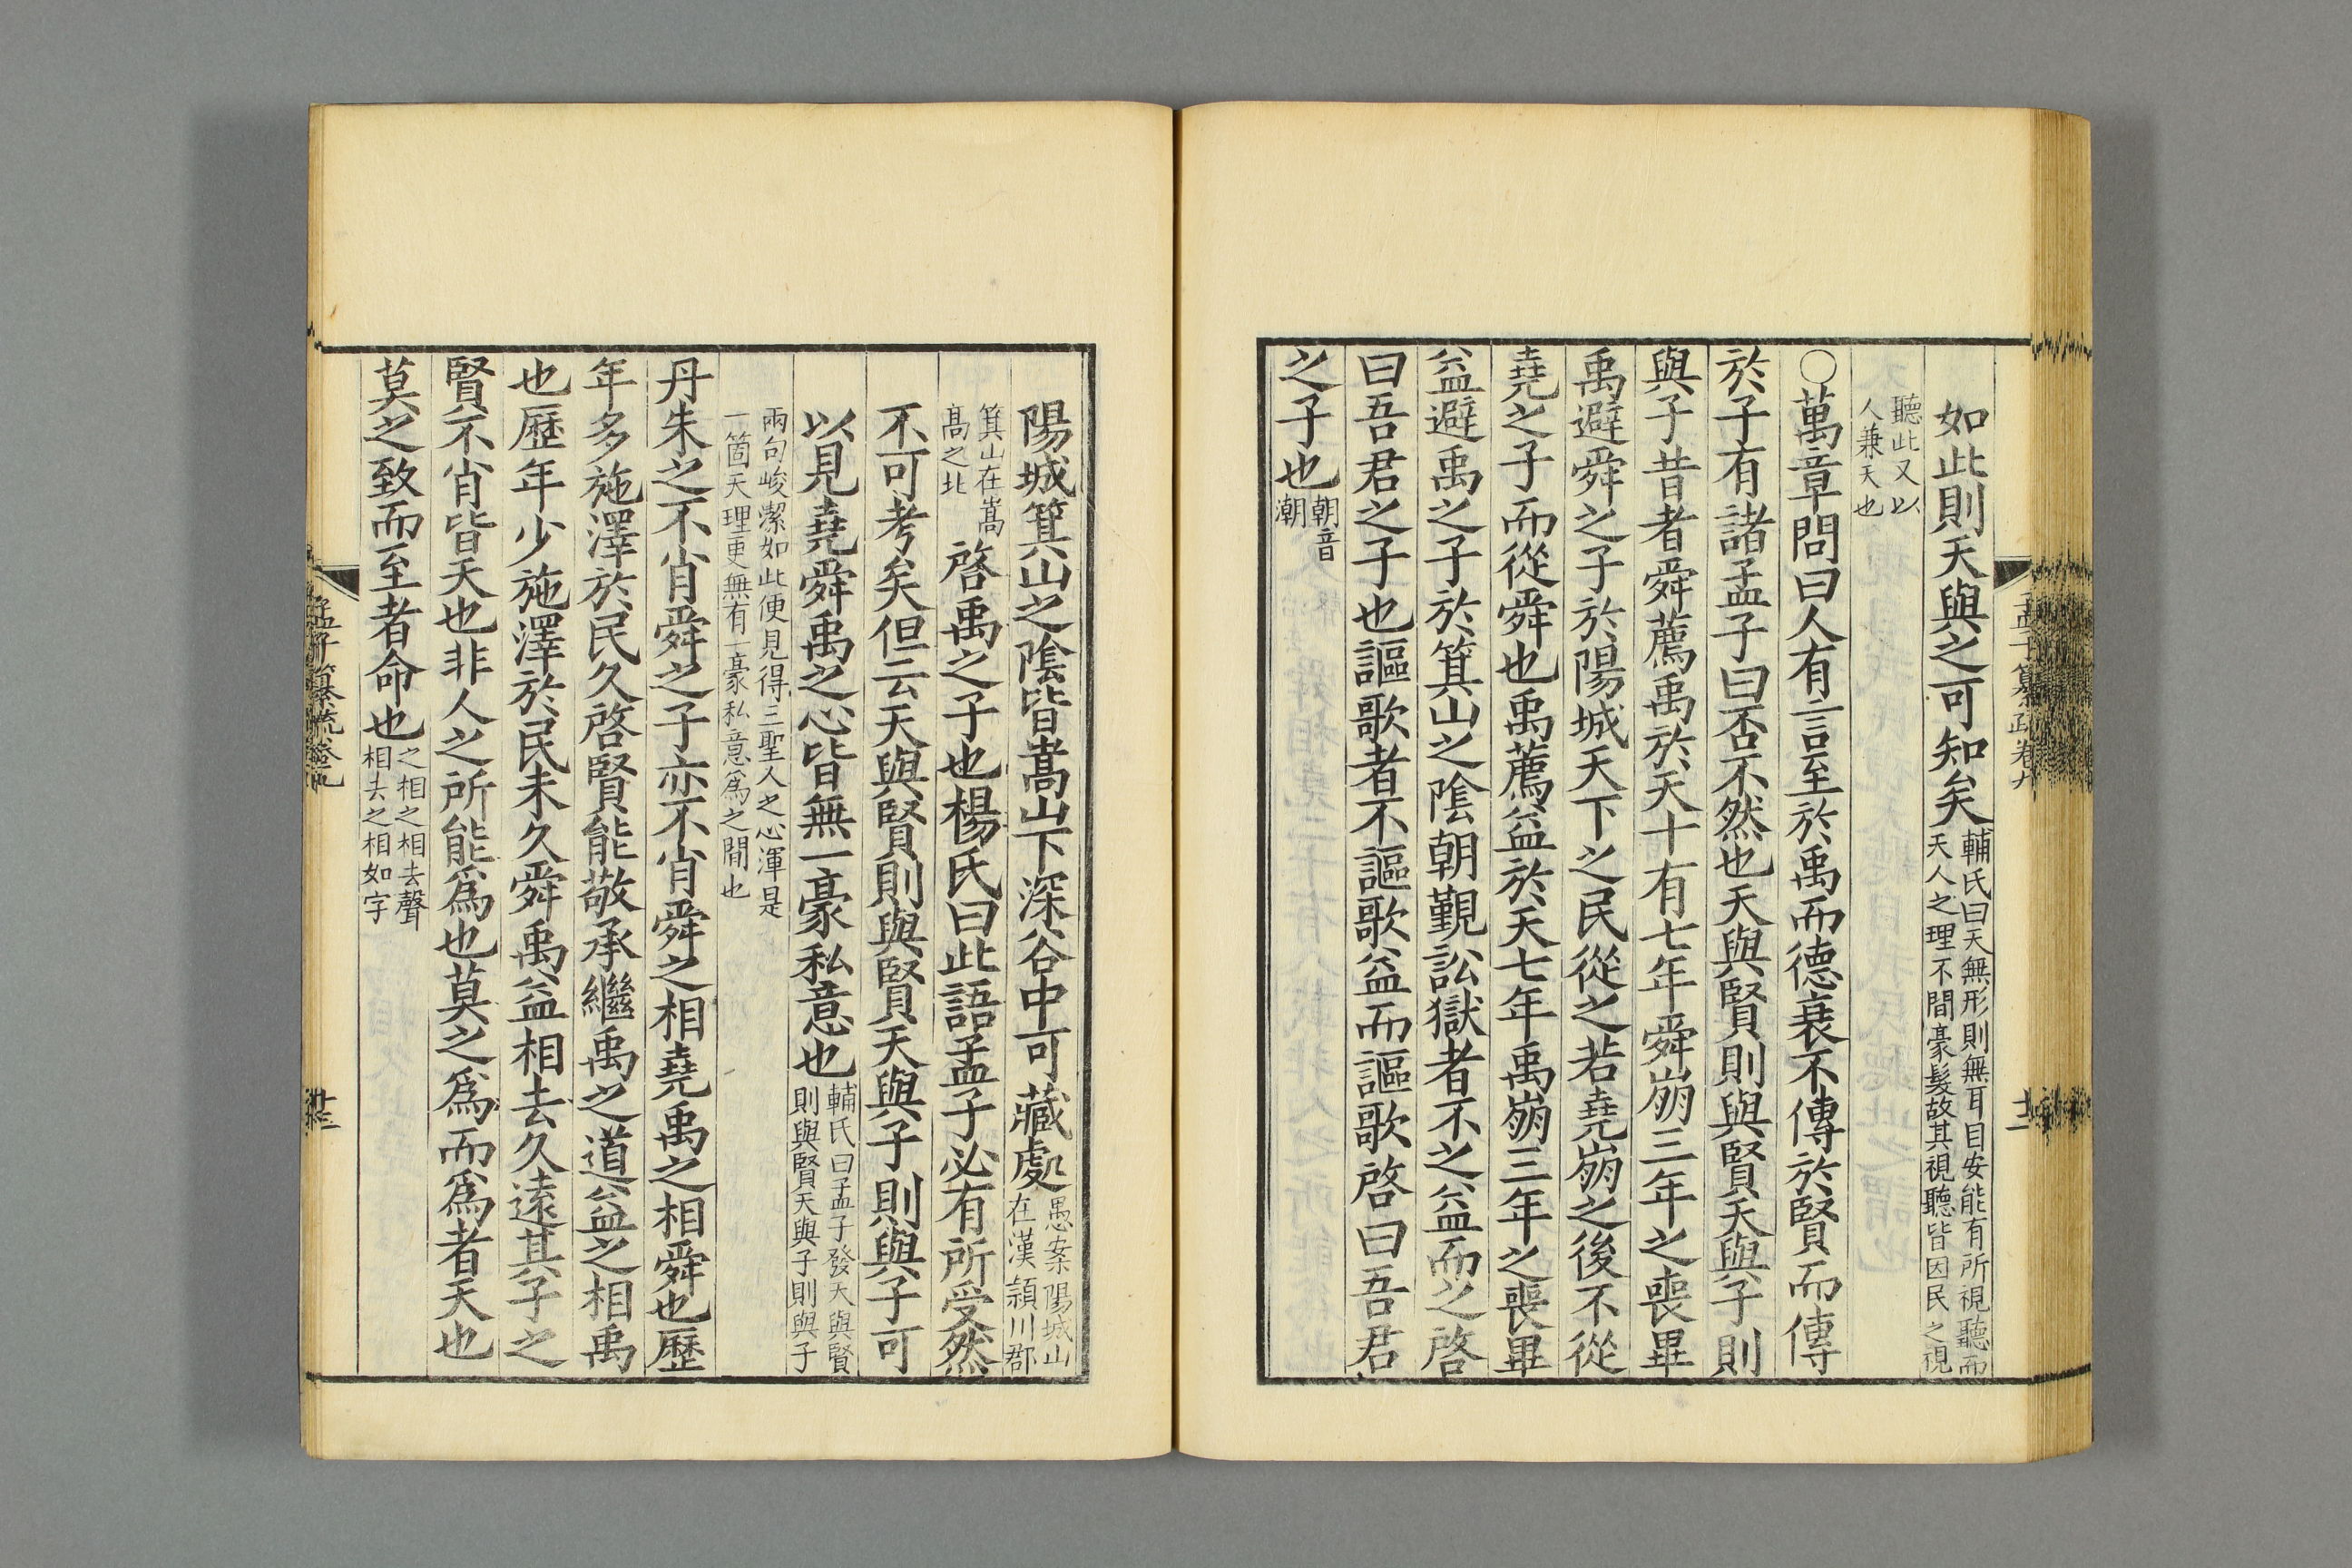 孟子纂疏卷九
十二
如此則天與之可知矣輔氏曰天無形則無耳目安能有所視聽而天人之理不間豪髮故其視聽皆因民之視
聽此又以人兼天也
○萬章問曰人有言至於禹而德衰不傳於賢而傳
於子有諸孟子曰否不然也天與賢則與賢天與子則
與子昔者舜薦禹於天十有七年舜崩三年之喪畢
禹避舜之子於陽城天下之民從之若堯崩之後不從
堯之子而從舜也禹薦益於天七年禹崩三年之喪畢
益避禹之子於箕山之陰朝覲訟獄者不之益而之啓
曰吾君之子也謳歌者不謳歌益而謳歌啓曰吾君
之子也朝音潮
陽城箕山之陰皆嵩山下深谷中可藏處愚案陽城山在漢潁川郡
箕山在嵩高之北啓禹之子也楊氏曰此語孟子必有所受然
不可考矣但云天與賢則與賢天與子則與子可
以見堯舜禹之心皆無一豪私意也輔氏曰孟子發天與賢則與賢天與子則與子
兩句峻潔如此便見得三聖人之心渾是一箇天理更無有一豪私意爲之間也
丹朱之不肖舜之子亦不肖舜之相堯禹之相舜也歷
年多施澤於民久啓賢能敬承繼禹之道益之相禹
也歷年少施澤於民未久舜禹益相去久遠其子之
賢不肖皆天也非人之所能爲也莫之爲而爲者天也
莫之致而至者命也之相之相去聲相去之相如字
孟子纂疏卷九